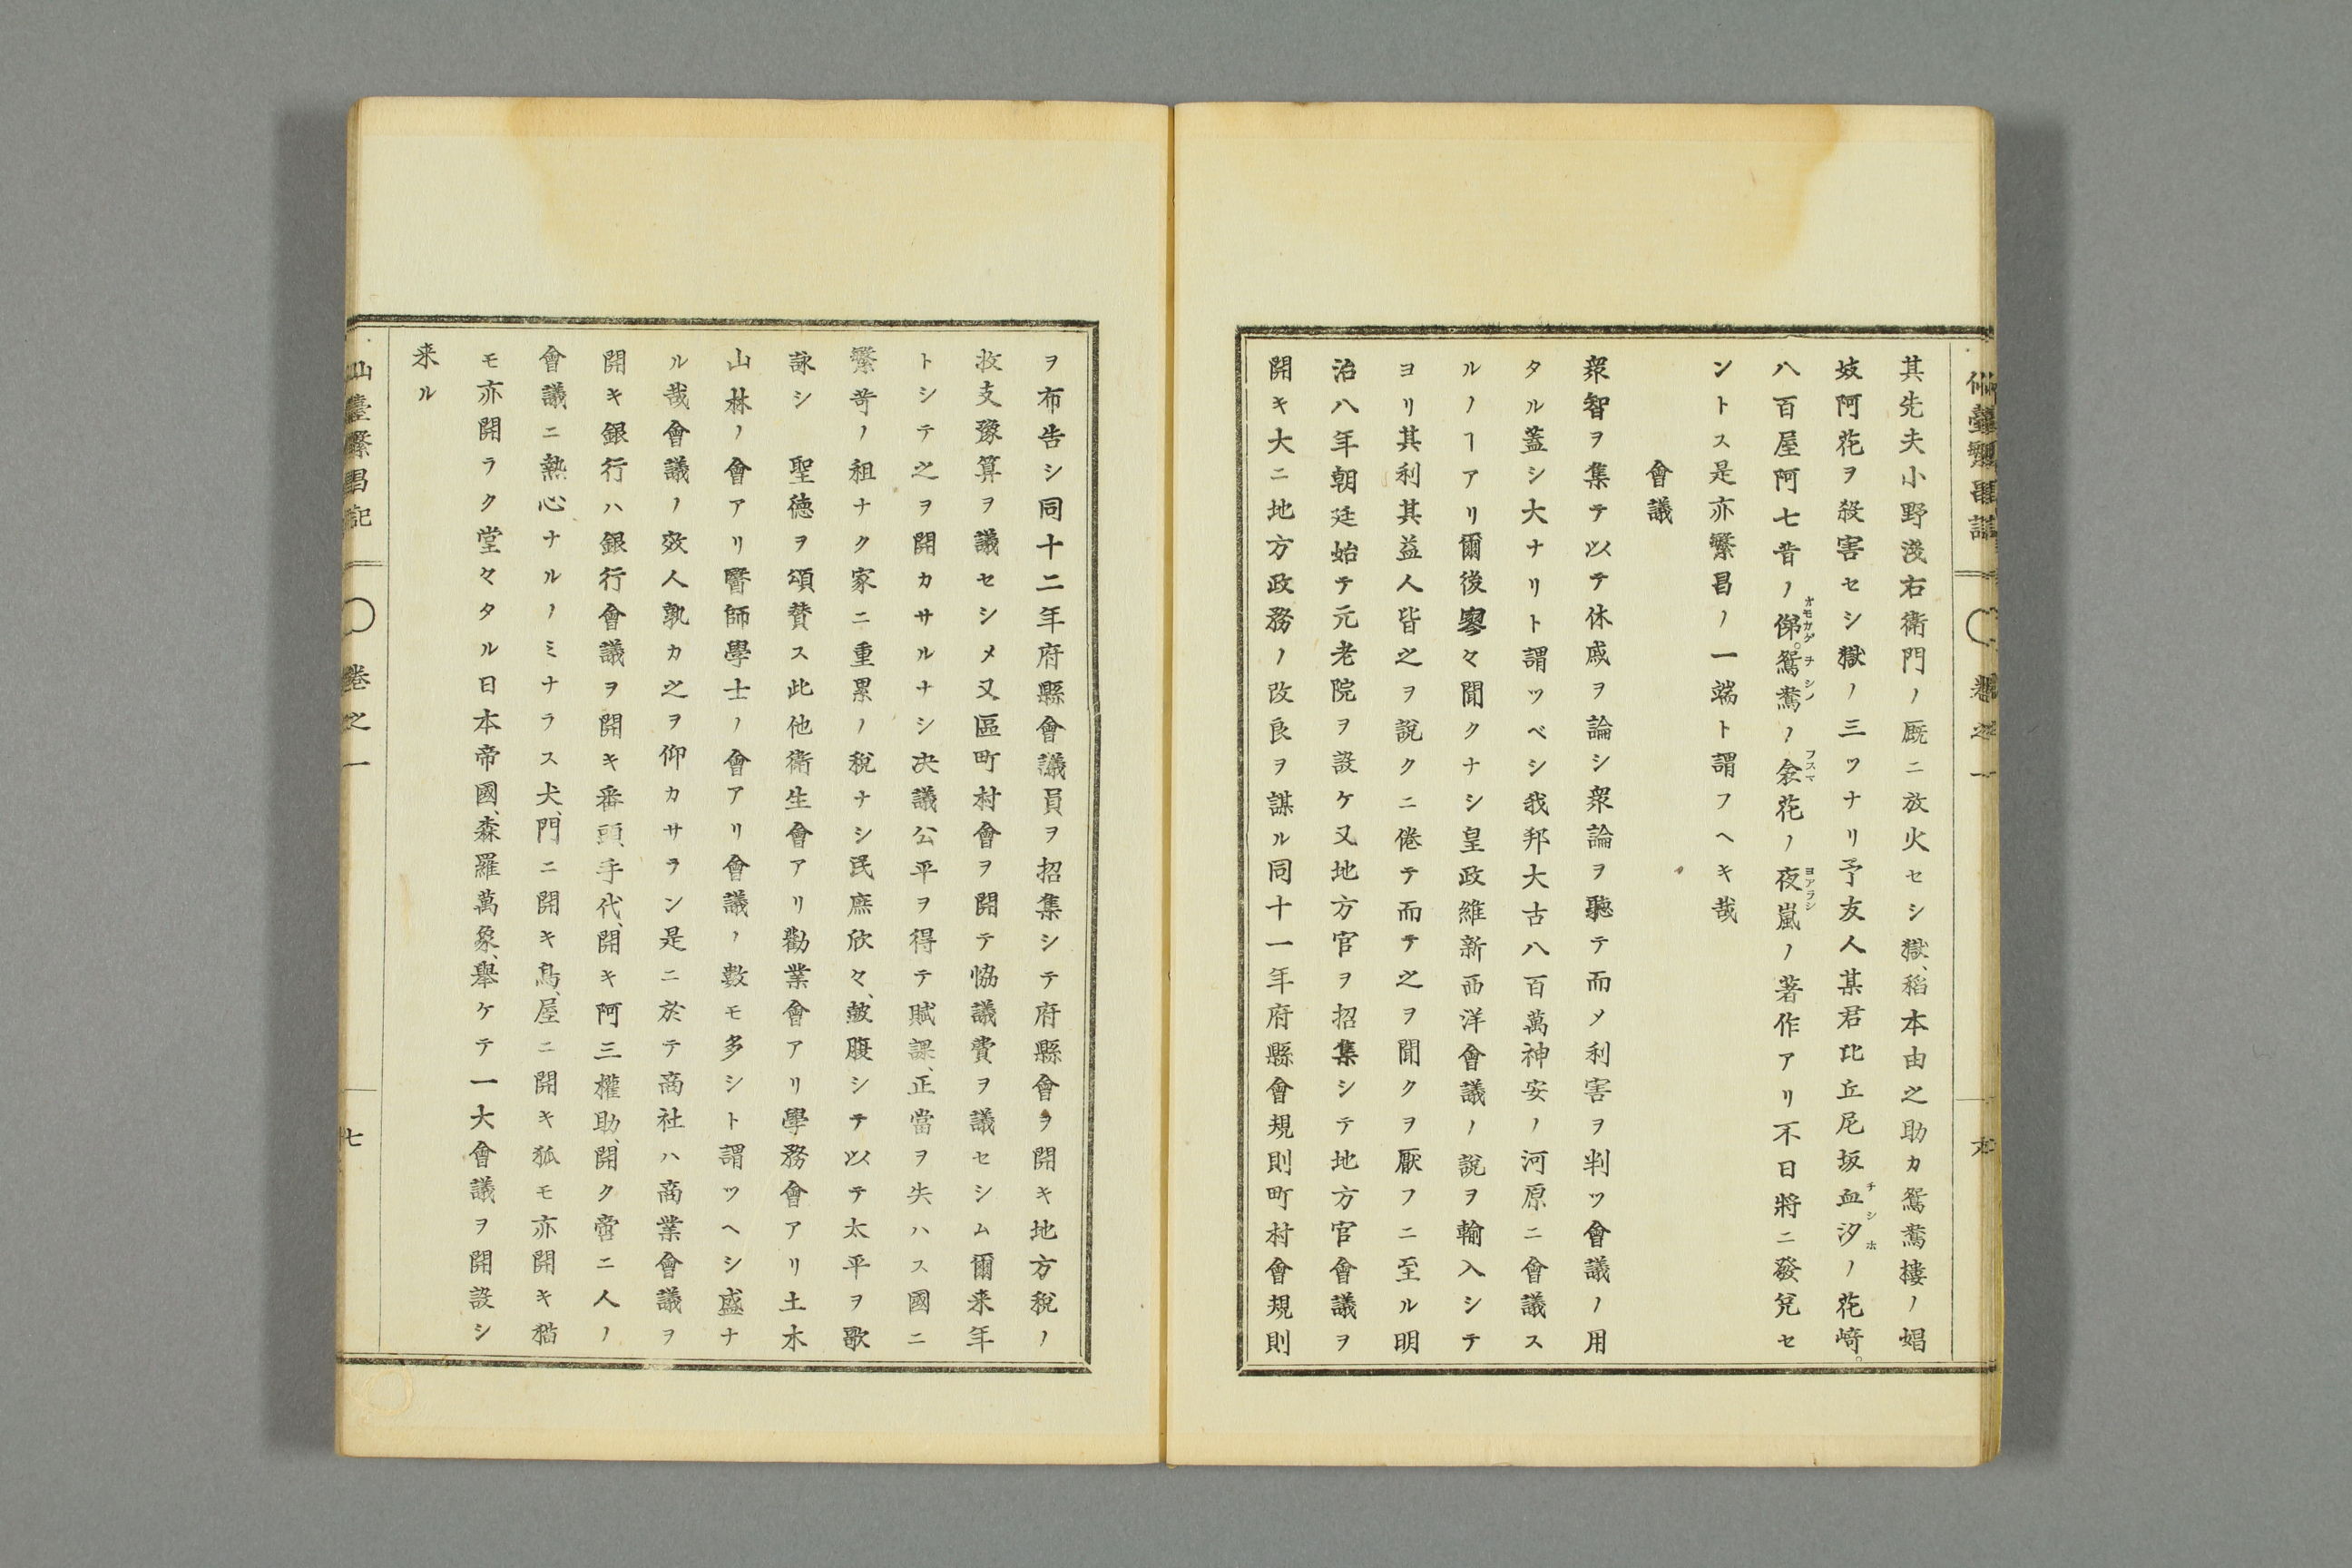 其先夫小野淺右衛門ノ厩ニ放火セシ獄、稻本由之助カ鴛鴦樓ノ娼
妓阿花ヲ殺害セシ獄ノ三ツナリ予友人某君比丘尼坂血汐ノ花﨑。
チシホ
八百屋阿七昔ノ俤。鴛鴦ノ衾花ノ夜嵐ノ著作アリ不日將ニ發兌セ
オモカゲ
ヲシノ
フスマ
ヨアラシ
ントス是亦繁昌ノ一端ト謂フヘキ哉
會議
衆智ヲ集テ以テ休戚ヲ論シ衆論ヲ聽テ而メ利害ヲ判ツ會議ノ用
タル蓋シ大ナリト謂ツベシ我邦大古八百萬神安ノ河原ニ會議ス
ルノヿアリ爾後寥々聞クナシ皇政維新西洋會議ノ說ヲ輸入シテ
ヨリ其利其益人皆之ヲ說クニ倦テ而テ之ヲ聞クヲ厭フニ至ル明
治八年朝廷始テ元老院ヲ設ケ又地方官ヲ招集シテ地方官會議ヲ
開キ大ニ地方政務ノ改良ヲ謀ル同十一年府縣會規則町村會規則
ヲ布告シ同十二年府縣會議員ヲ招集シテ府縣會ヲ開キ地方稅ノ
收支豫算ヲ議セシメ又區町村會ヲ開テ恊議費ヲ議セシム爾来年
トシテ之ヲ開カサルナシ决議公平ヲ得テ賦課、正當ヲ失ハス國ニ
繁苛ノ租ナク家ニ重累ノ稅ナシ民庶欣々、皷腹シテ以テ太平ヲ歌
詠シ　聖德ヲ頌賛ス此他衛生會アリ勸業會アリ學務會アリ土木
山林ノ會アリ醫師學士ノ會アリ會議ノ數モ多シト謂ツヘシ盛ナ
ル哉會議ノ效人孰カ之ヲ仰カサラン是ニ於テ商社ハ商業會議ヲ
開キ銀行ハ銀行會議ヲ開キ番頭手代、開キ阿三權助、開ク啻ニ人ノ
會議ニ熱心ナルノミナラス犬、門ニ開キ鳥、屋ニ開キ狐モ亦開キ猫
モ亦開ラク堂々タル日本帝國、森羅萬象、擧ケテ一大會議ヲ開設シ
来ル
仙臺繁昌記
卷之一
七